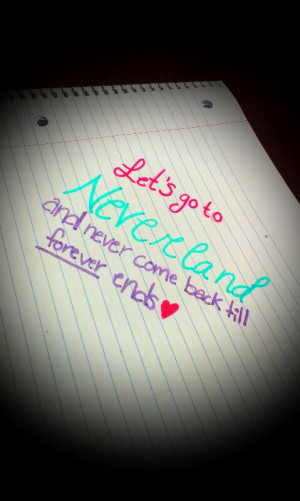 Let's go to
Neverland
and never come back till
forever ends